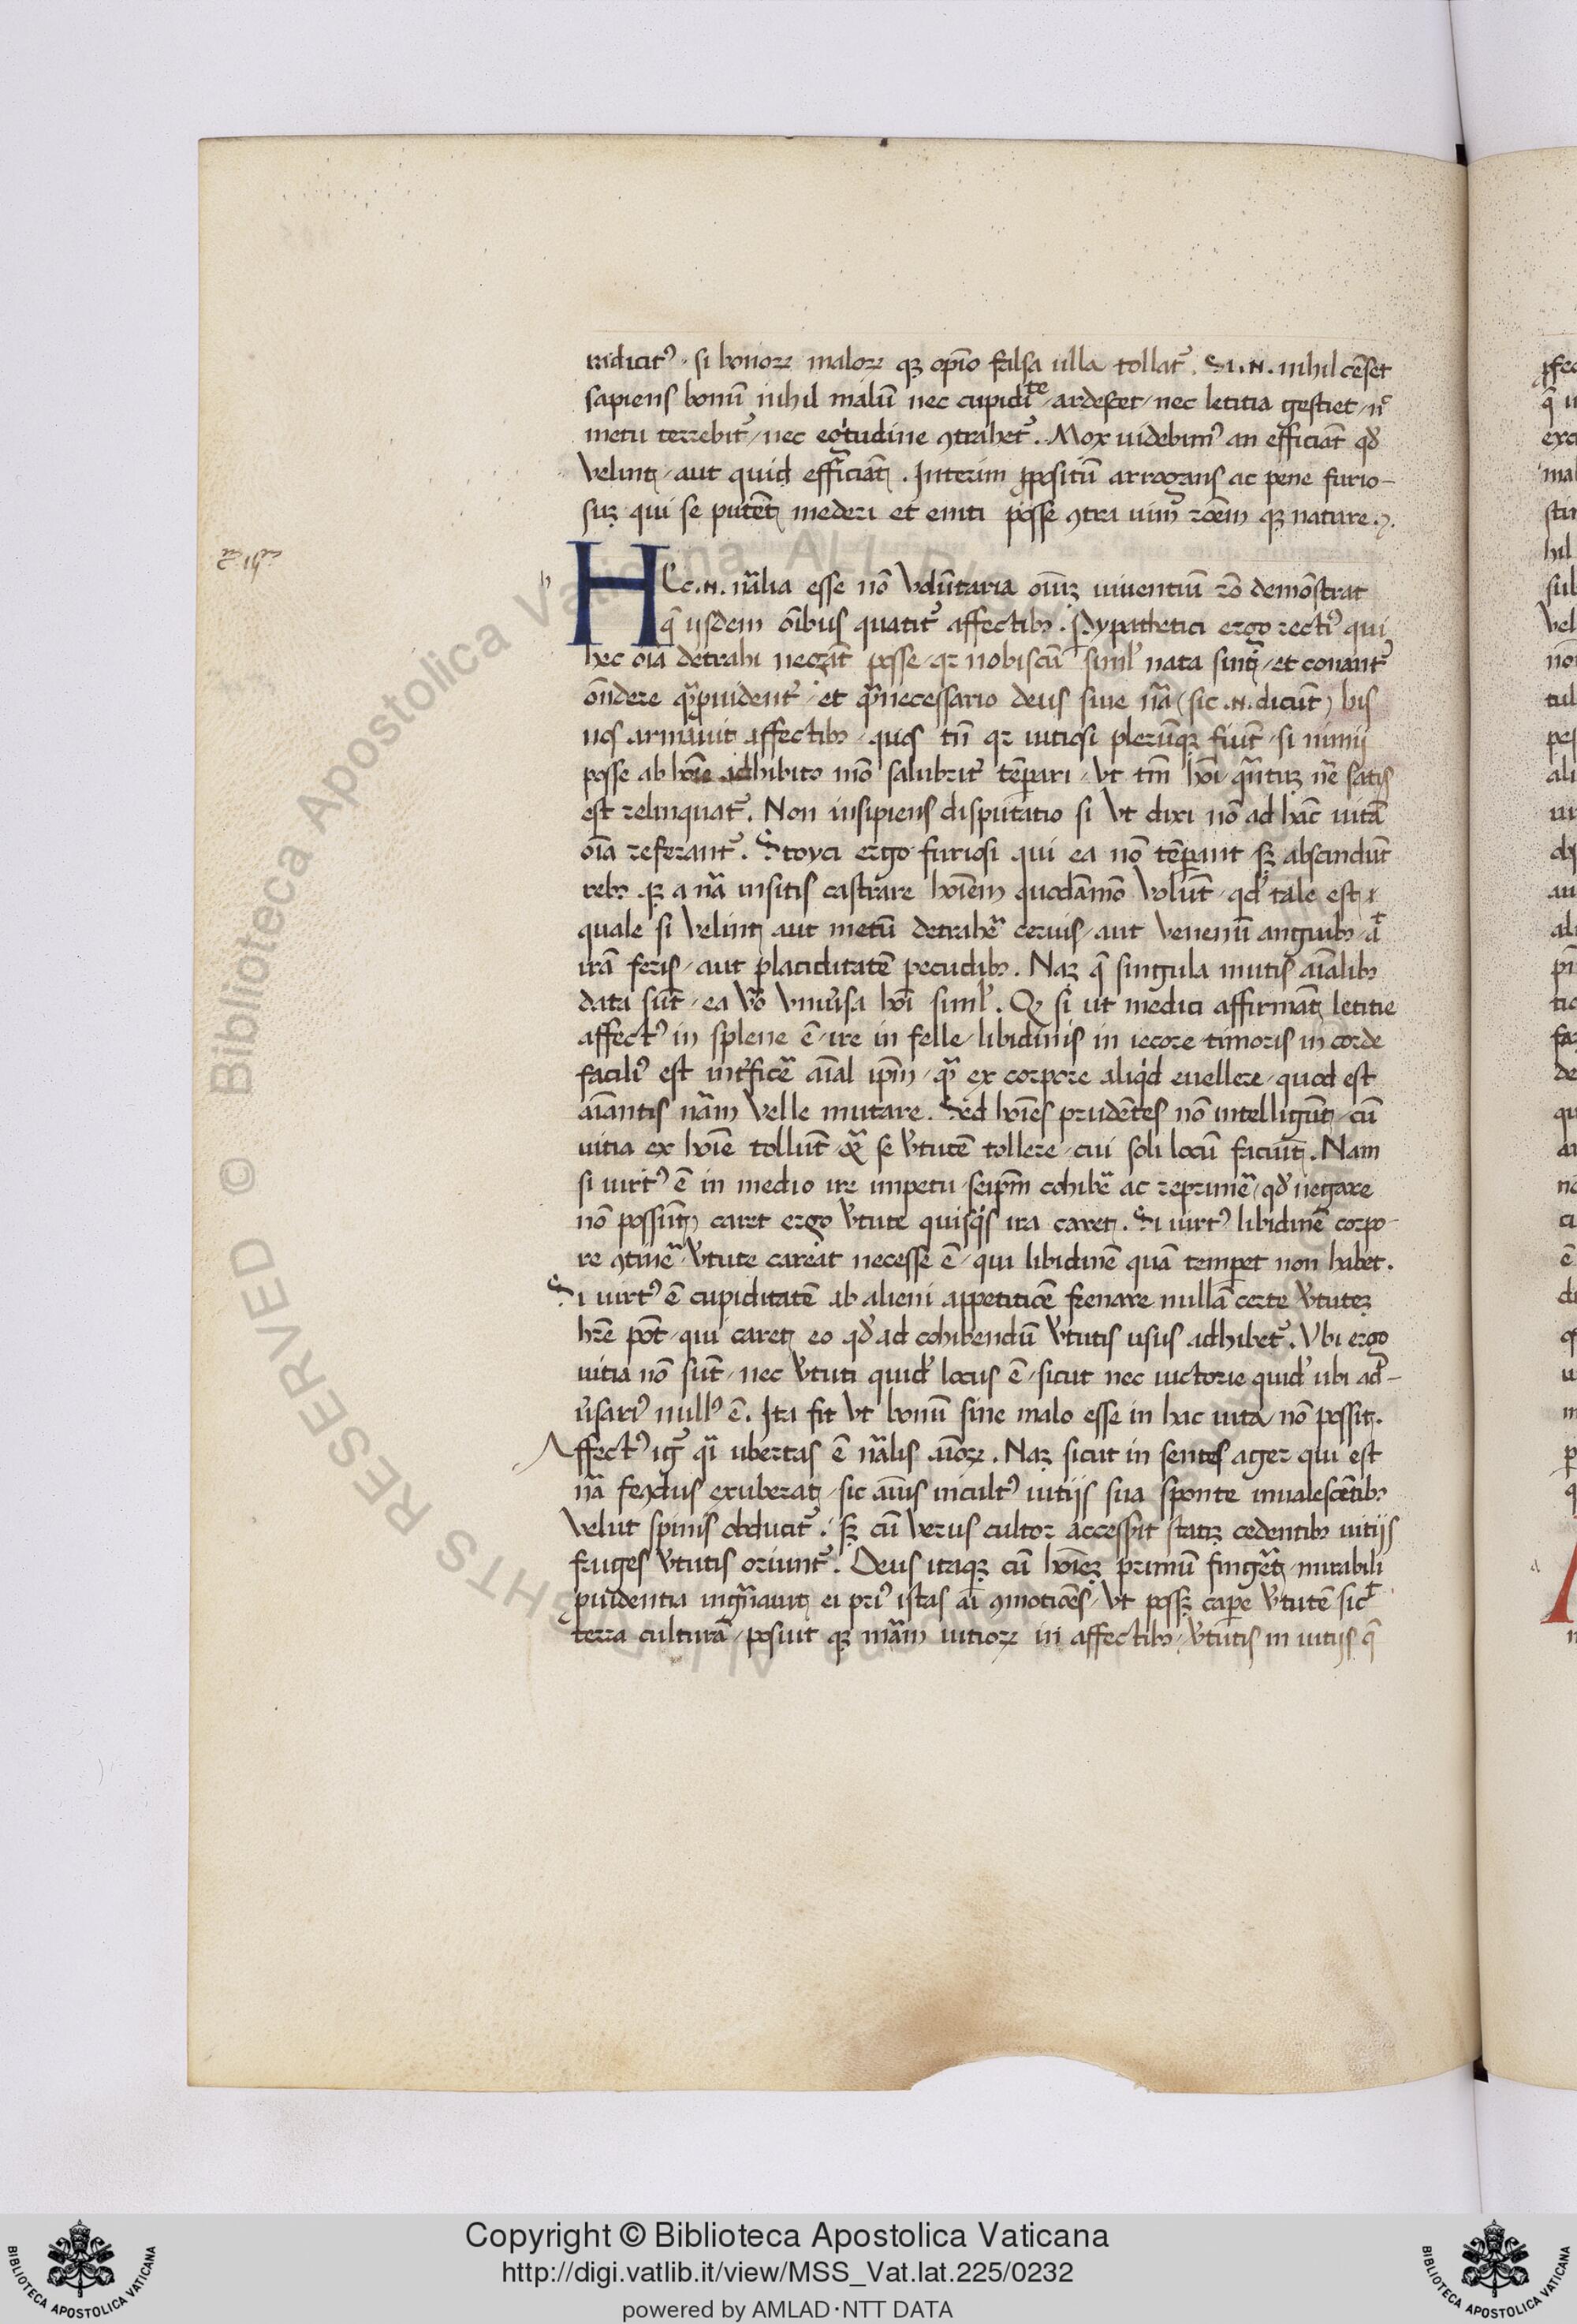 radicitꝰ. si bonoꝝ maloꝝ qꝫ opĩo falsa ulla tollat᷑. Si .N. nihil cẽset
sapiens bonũ nihil malũ nec cupidiᵗᵉ / ardescet / nec letitia gestiet /
metu terrebit᷑ / nec egritudine ꝯtrahet᷑. Mox uidebimꝰ an efficiãt qđ
Velint / aut quid efficiãt. Interim ꝓpositũ arrogans ac pene furio-
suꝫ qui se putẽt mederi et eniti posse ꝯtra uim rõem qꝫ nature.
HEc .N. nãlia esse nõ Volũtaria oĩuꝫ uiuentiũ rõ demõstrat
q̃ iisdem oĩbus quatit᷑ affectibꝫ. Pypathetici ergo rectiꝰ qui
hec oĩa detrahi negãt posse / qꝛ nobiscũ simĺ nata sint / et conant᷑
oñdere q̃ꝓuident᷑ / et q̃necessario deus siue nã (sic .N. dicũt) his
nos armauit affectibꝫ / quos tñ qꝛ uitiosi plerũqꝫ fiũt / si nimij
posse ab hoĩe adhibito mõ salubrit᷑ tẽperari / Vt tm̃ hoĩ q̃ntuꝫ nẽ satis
est relinquat᷑. Non insipiens disputatio si Vt dixi nõ ad hãc uitã
oĩa referant᷑. Stoyci ergo furiosi qui ea nõ tẽperant sꝫ abscindũt
rebꝫ qꝫ a nã insitis castrare hoĩem quodãmõ Volũt / qđ tale est
quale si Velint aut metũ detrahẽ ceruis / aut Venenũ anguibꝫ /
irã feris / aut placiditatẽ pecudibꝫ. Naꝫ q̃ singula mutis aĩalibꝫ
data sũt / ea Vo Vniu᷑sa hoĩ simĺ. Qꝫ si ut medici affirmãt letitie
affectꝰ in splene ẽ / ire in felle / libidinis in iecore timoris in corde
faciliꝰ est int᷑ficẽ aĩal ip̃m / q̃ ex corpore aliqͥd euellere / quod est
aĩantis nãm Velle mutare. Sed hoĩes prudẽtes nõ intelligũt / cũ
uitia ex hoĩe tollũt / q̃ se V᷑tutẽ tollere / cui soli locũ faciũt. Nam
si uirtꝰ ẽ in medio ire impetu seip̃m cohibẽ ac reprimẽ / qđ negare
nõ possũt / caret ergo V᷑tute quisqͥs ira caret. Si uirtꝰ libidinẽ corpo-
re ꝯtinẽ / V᷑tute careat necesse ẽ / qui libidinẽ quã temperet non habet.
Si uirtꝰ ẽ cupiditatẽ ab alieni appetitiõe frenare nullã certe V᷑tuteꝫ
hr̃e põt / qui caret eo qđ ad cohibendũ V᷑tutis usus adhibet᷑. Vbi ergo
uitia nõ sũt / nec V᷑tuti quid̃ locus ẽ / sicut nec uictorie quid̃ ubi ad-
u᷑sariꝰ nullꝰ ẽ. Ita fit Vt bonũ sine malo esse in hac uita nõ possit.
Affectꝰ ig᷑ q̃i ubertas ẽ nãlis aĩoꝝ. Naꝫ sicut in sentes ager qui est
nã fecũdus exuberat / sic aĩus incultꝰ uitijs sua sponte inualescẽtibꝫ
Velut spinis obducit᷑. sꝫ cũ Verus cultor accessit statiꝫ cedentibꝫ uitijs
fruges V᷑tutis oriunt᷑. Deus itaqꝫ cũ hoĩeꝫ primũ fingẽt / mirabili
ꝓuidentia ingñauit ei priꝰ istas aĩ ꝯmotiões / Vt posꝫ caꝑe V᷑tutẽ sicᵗ
terra culturã / posuit qꝫ mãm uitioꝝ in affectibꝫ / V᷑tutis in uitijs q̃
Copyright © Biblioteca Apostolica Vaticana
http://digi.vatlib.it/view/MSS_Vat.lat.225/0232
powered by AMLAD·NTT DATA